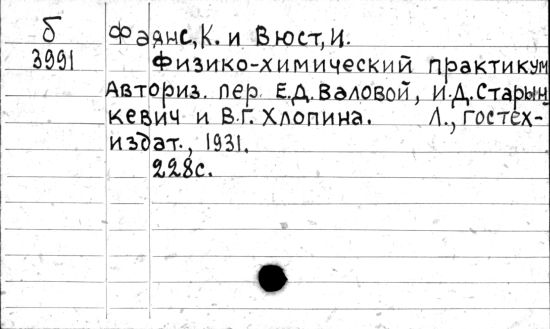 б Фаянс, К. и Вюст, И.
3991 Физико-химический практикум
Авториз. пер. Е.Д. Валовой, И.Д. Старын-
кевич и В.Г. Хлопина. Л., Гостех-
издат., 1931.
228с.